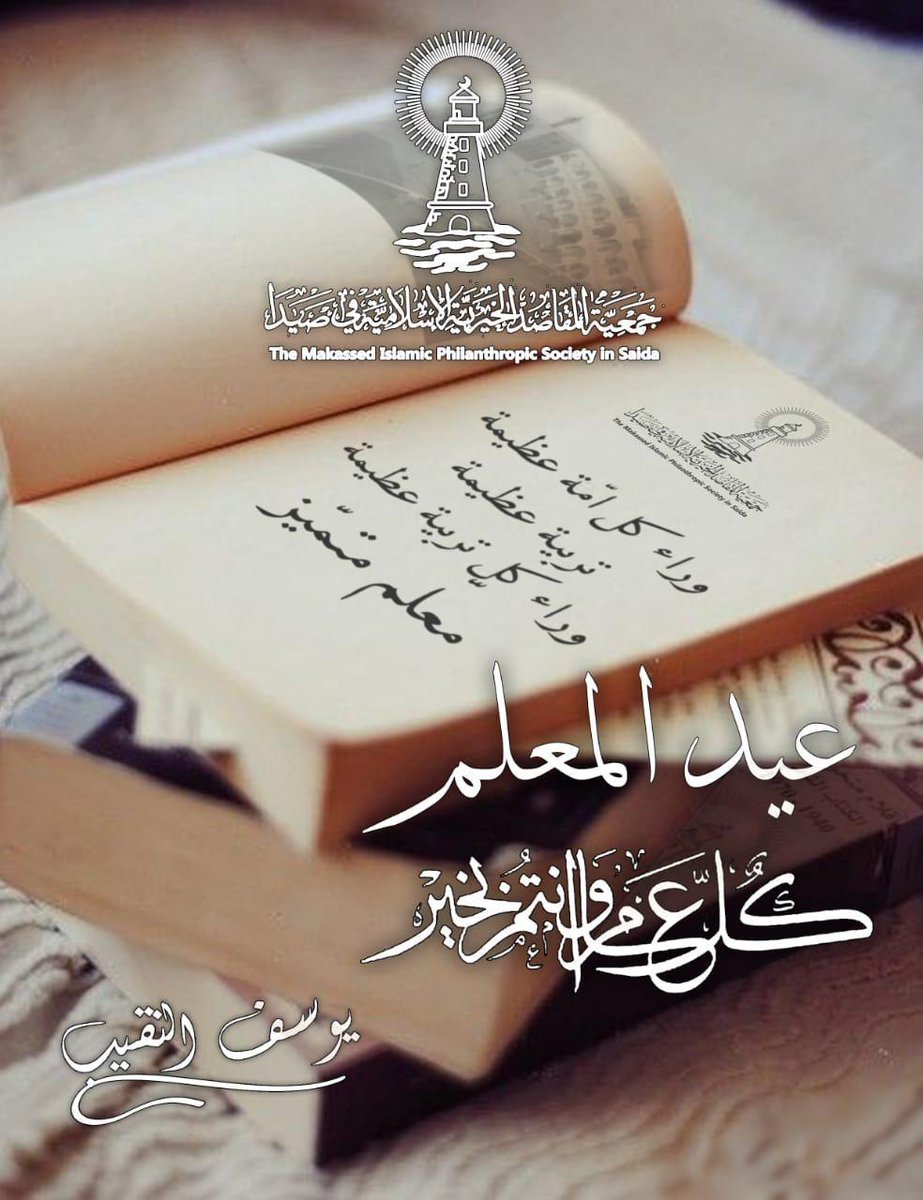 جمعية المقاصد الخيرية الإسلامية في صيدا
The Makassed Islamic Philanthropic Society in Saida
جمعية المقاصد الخيرية الإسلامية في صيدا
The Makassed Islamic Philanthropic Society in Saida
وراء كل امّة عظيمة
تربية عظيمة
وراء كلّ تربية عظيمة
معلم متميّز
عيد المعلم
كُلّ عَام وَانتُم بخَير
يوسف النقيب